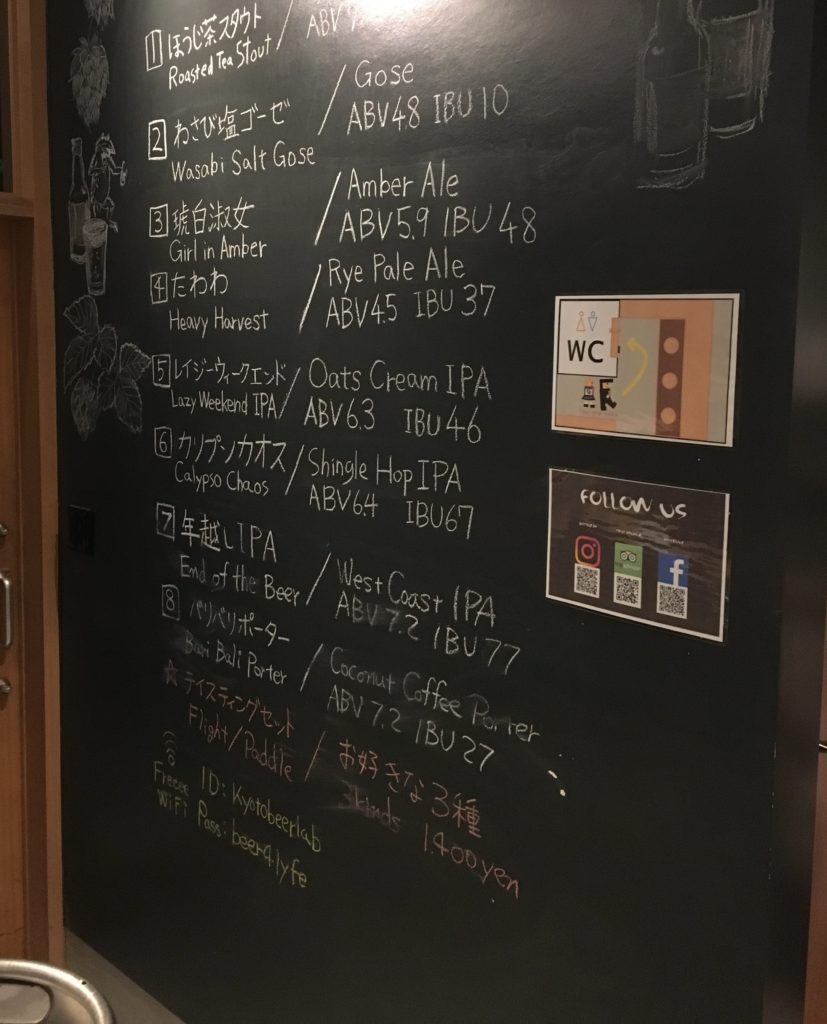 1 ほうじ茶スタウト / ABV
Roasted Tea Stout
2 わさび塩ゴーゼ / Gose
Wasabi Salt Gose ABV4.8 IBU10
3 琥白淑女 / Amber Ale
Girl in Amber ABV5.9 IBU48
4 たわわ / Rye Pale Ale
Heavy Harvest ABV4.5 IBU37
5 レイジーウィークエンド / Oats Cream IPA
Lazy Weekend IPA ABV6.3 IBU46
6 カリプソカオス / Shingle Hop IPA
Calypso Chaos ABV6.4 IBU67
7 年越しIPA / West Coast IPA
End of the Beer ABV7.2 IBU77
8 バリバリポーター / Coconut Coffee Porter
Bari Bali Porter ABV7.2 IBU27
☆ テイスティングセット / お好きな3種
Flight/Paddle 3kinds 1.400yen
Freeee WiFi
ID: Kyotobeerlab
Pass: beer4lyfe
WC
FOLLOW US